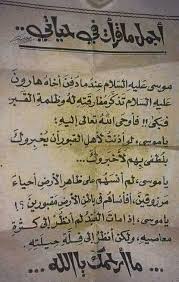 أجمل ما قرأت في حياتي ..
موسى عليه السلام عندما دفن أخاه هارون
عليه السلام تذكر مفارقته له وظلمة القبر
فبكى !! فأوحى الله تعالى إليه :
يا موسى ، لو أذنت لأهل القبور أن يخبروك
بلطفي بهم لأخبروك ...
يا موسى ، لم أنسهم على ظاهر الأرض أحياء
مرزوقين ، أفأنساهم في باطن الأرض مقبورين ؟ !
يا موسى ، إذا مات العبد لم أنظر إلى كثرة
معاصيه ، ولكن أنظر إلى قلة حيلته .
... ما أرحمك يا الله ...